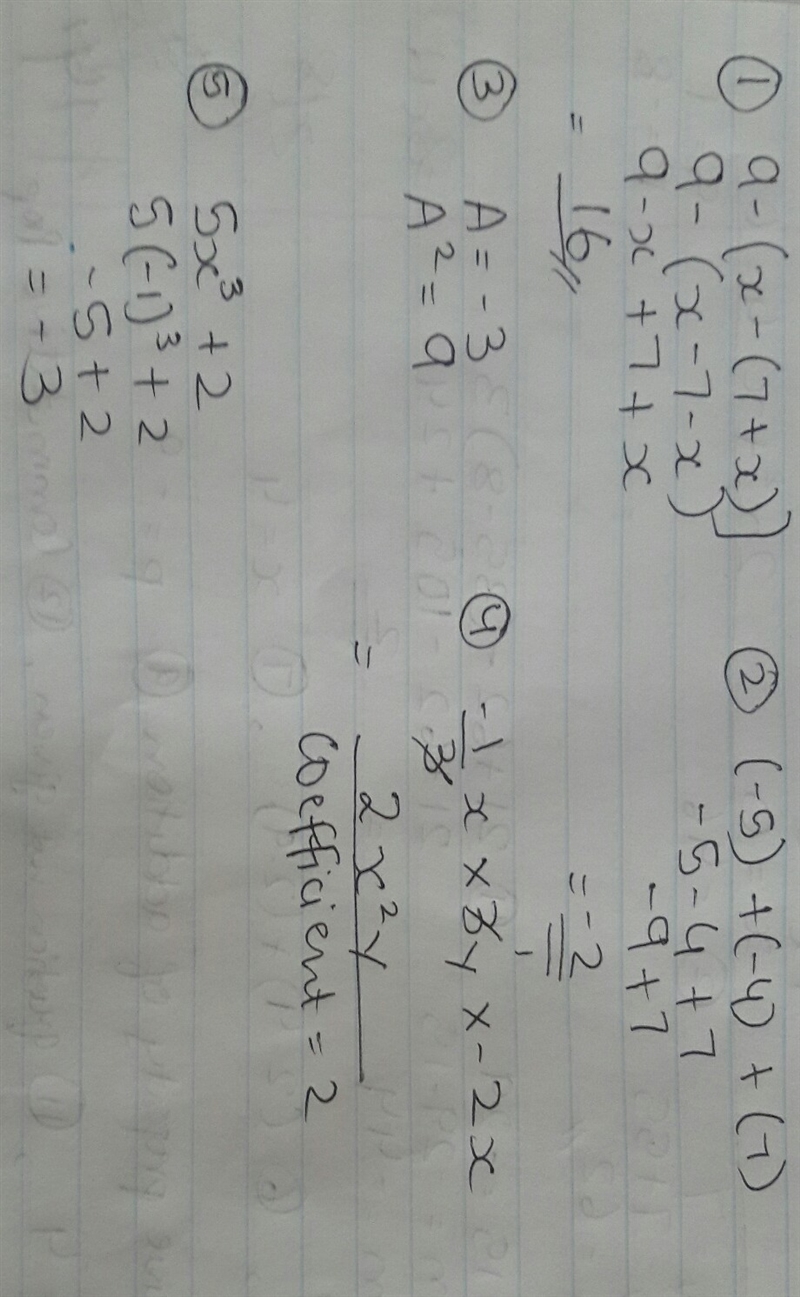 ① 9-(x-(7+x)]
9-(x-7-x)
9-x+7+x
= 16
② (-5)+(-4)+(7)
-5-4+7
-9+7
=-2
③ A = -3
A² = 9
④ -1/3 x × 3y × -2x
1
= 2x²y
Coefficient = 2
⑤ 5x³ + 2
5(-1)³ + 2
-5+2
= -3